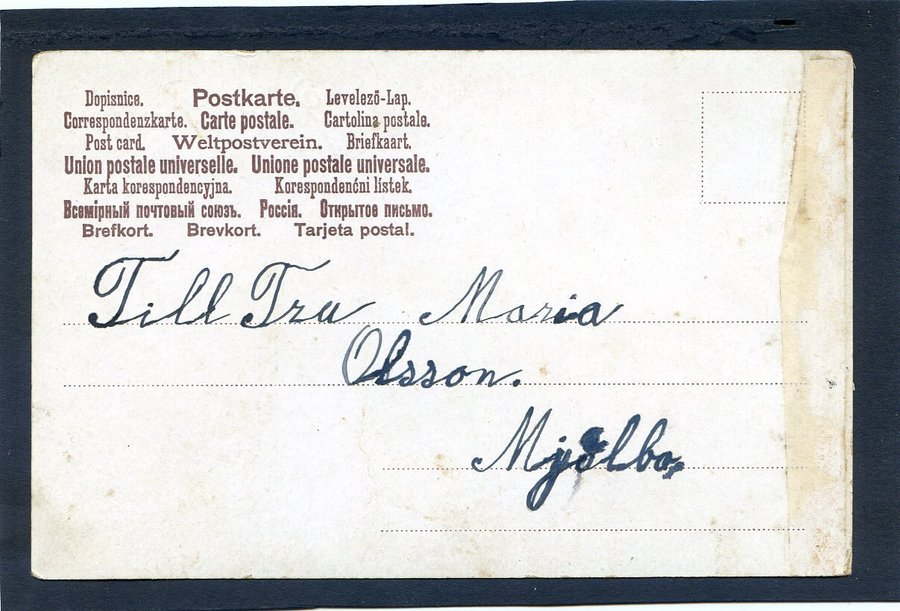 Dopisnice. Postkarte. Levelező-Lap.
Correspondenzkarte. Carte postale. Cartolina postale.
Post card. Weltpostverein. Briefkaart.
Union postale universelle. Unione postale universale.
Karta korespondencyjna. Korespondenčni listek.
Всемірный почтовый союзъ. Россія. Открытое письмо.
Brefkort. Brevkort. Tarjeta postal.
Till Fru Maria
Olsson.